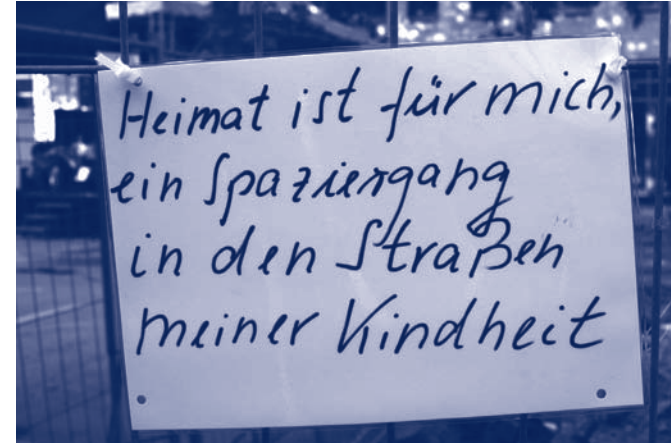 Heimat ist für mich,
ein Spaziergang
in den Straßen
meiner Kindheit